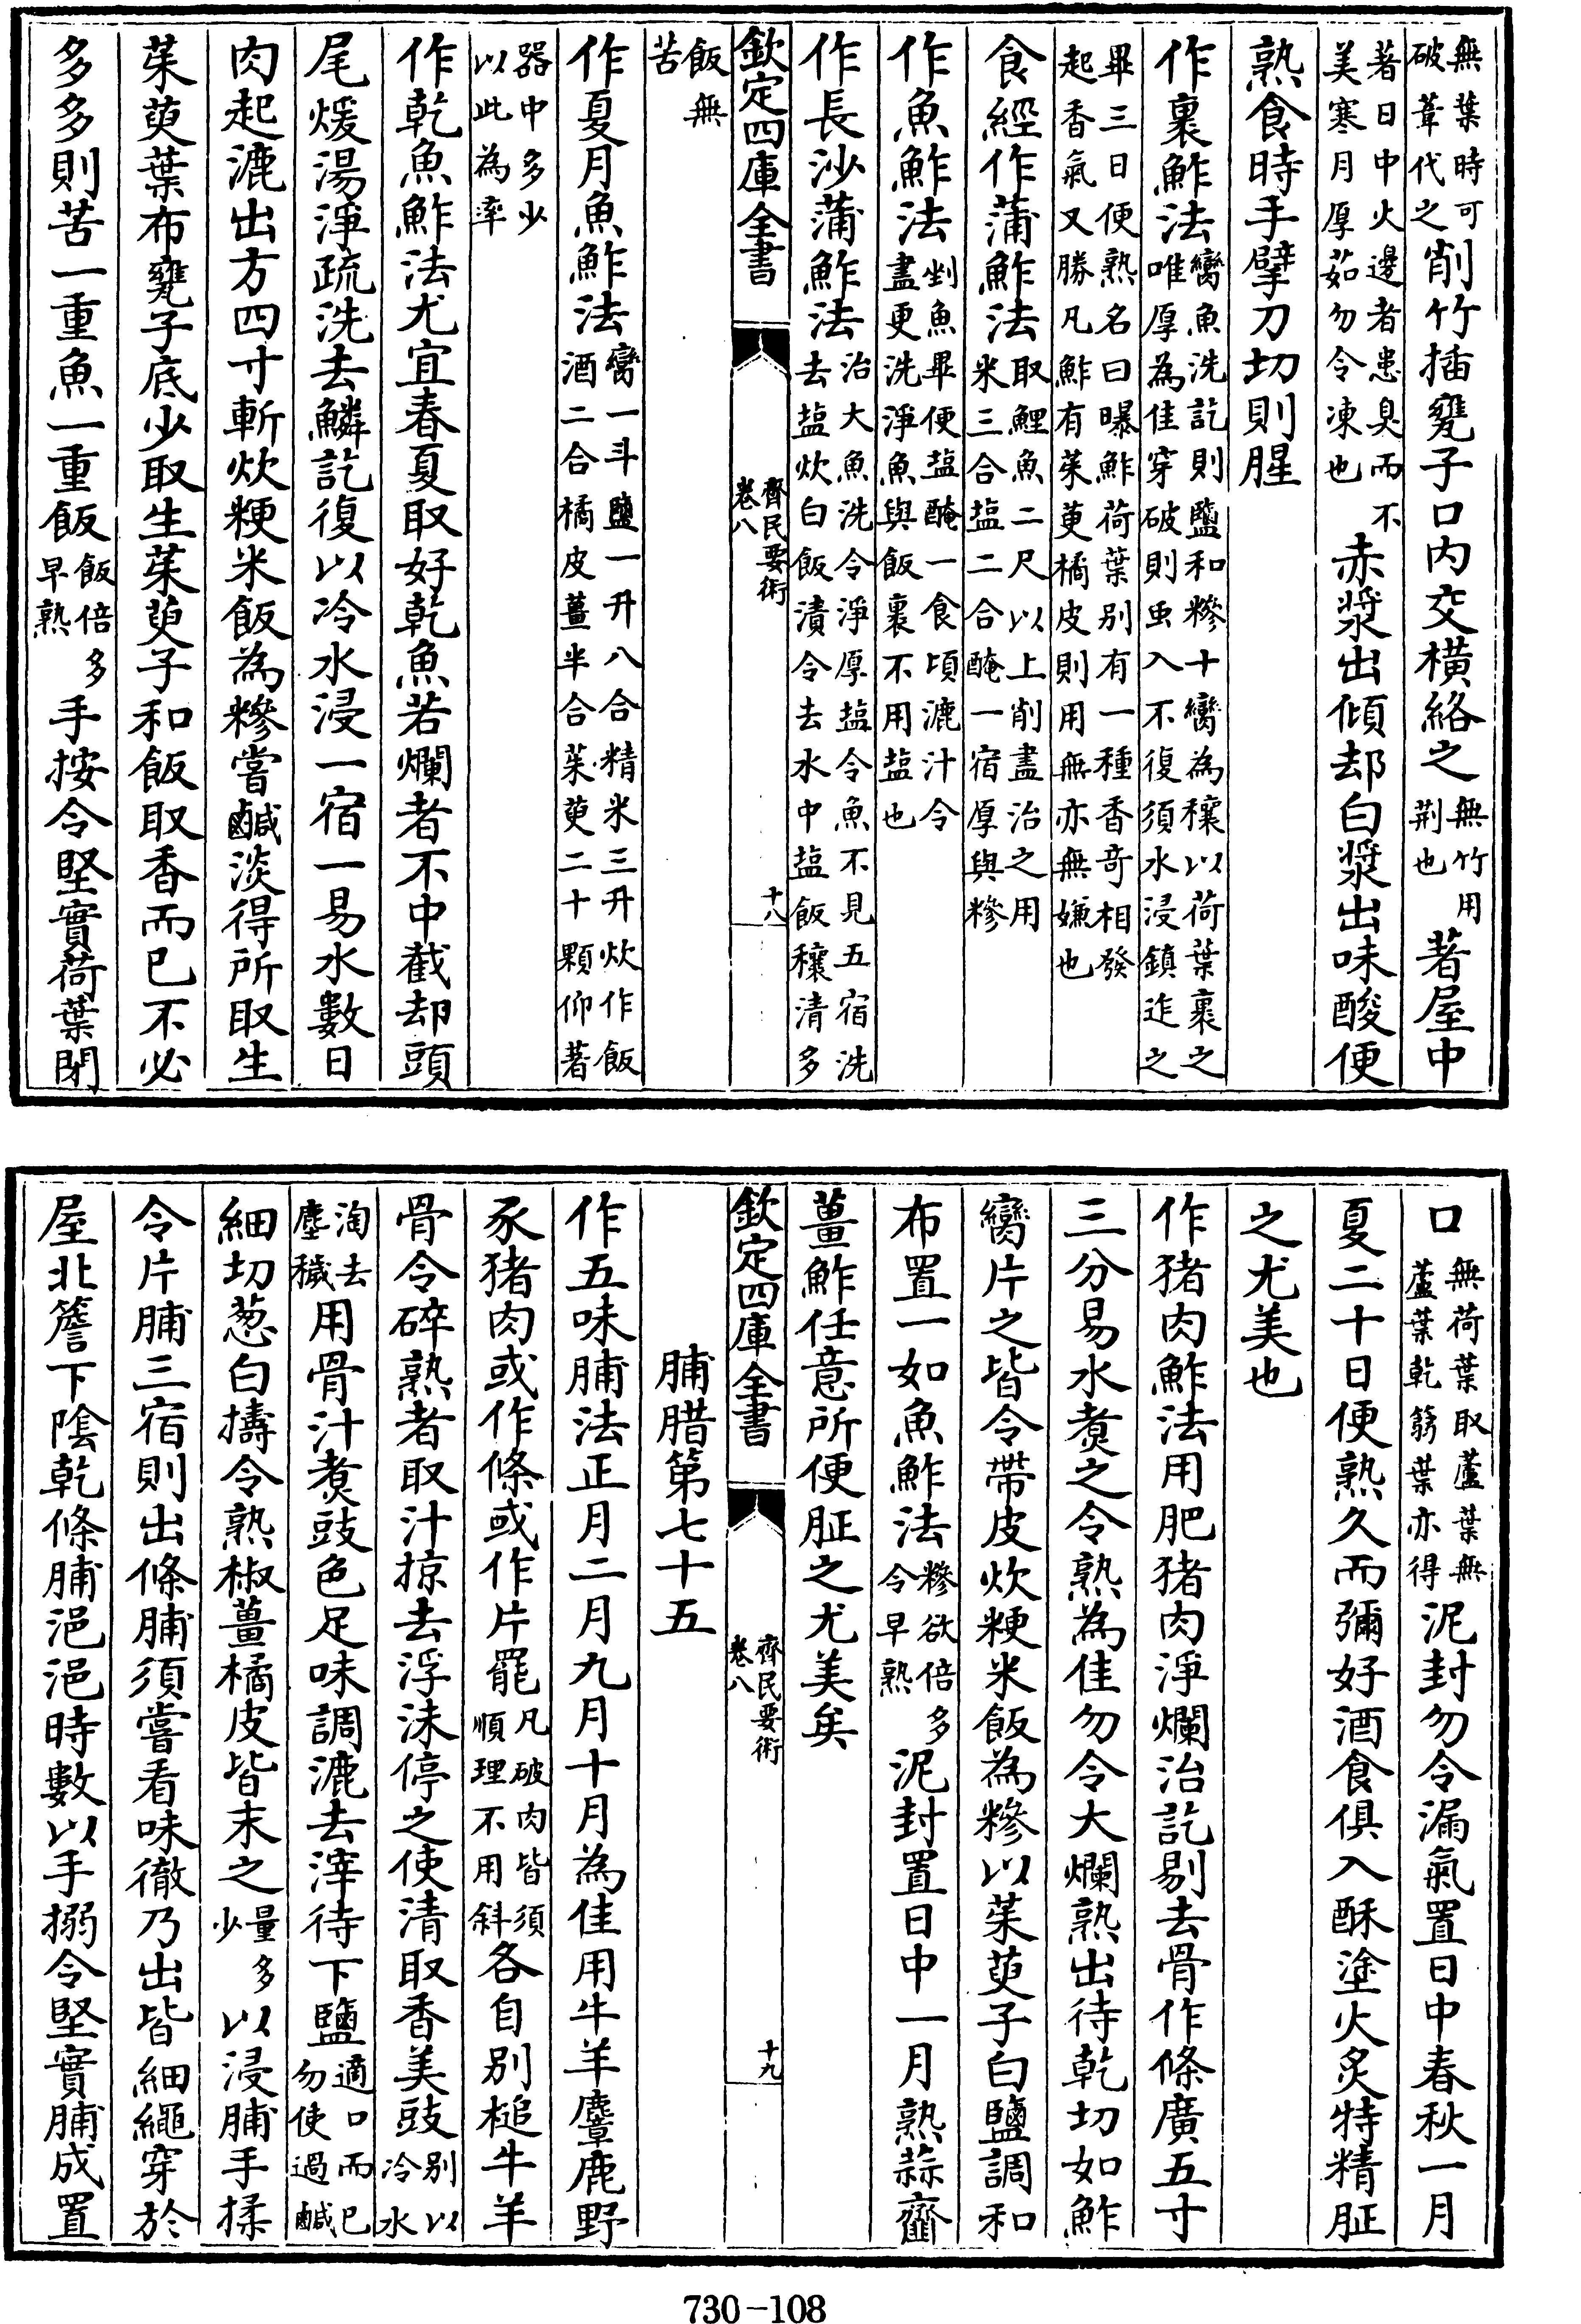 無葉時可
破葦代之削竹插甕子口内交橫絡之無竹用
荆也著屋中
著日中火邊者患臭而不
美寒月厚茹勿令凍也赤漿出傾却白漿出味酸便
熟食時手擘刀切則腥
作裹鮓法臠魚洗訖則鹽和糝十臠為穰以荷葉裹之
唯厚為佳穿破則虫入不復須水浸鎮迮之
畢三日便熟名曰曝鮓荷葉别有一種香竒相發
起香氣又勝凡鮓有茱萸橘皮則用無亦無嫌也
食經作蒲鮓法取鯉魚二尺以上削盡治之用
米三合塩二合醃一宿厚與糝
作魚鮓法剉魚畢便塩醃一食頃漉汁令
盡更洗淨魚與飯裹不用塩也
作長沙蒲鮓法治大魚洗令淨厚塩令魚不見五宿洗
去塩炊白飯漬令去水中塩飯穰清多
欽定四庫全書
齊民要術
卷八
十八
飯無
苦
作夏月魚鮓法臠一斗鹽一升八合精米三升炊作飯
酒二合橘皮薑半合茱萸二十顆仰著
器中多少
以此為率
作乾魚鮓法尤宜春夏取好乾魚若爛者不中截却頭
尾煖湯淨疏洗去鱗訖復以冷水浸一宿一易水數日
肉起漉出方四寸斬炊粳米飯為糝嘗鹹淡得所取生
茱萸葉布甕子底少取生茱萸子和飯取香而已不必
多多則苦一重魚一重飯飯倍多
早熟手按令堅實荷葉閉
口無荷葉取蘆葉無
蘆葉乾蒻葉亦得泥封勿令漏氣置日中春秋一月
夏二十日便熟久而彌好酒食俱入酥塗火炙特精脏
之尤美也
作猪肉鮓法用肥猪肉淨爛治訖剔去骨作條廣五寸
三分易水煑之令熟為佳勿令大爛熟出待乾切如鮓
臠片之皆令帶皮炊粳米飯為糝以茱萸子白鹽調和
布置一如魚鮓法糝欲倍多
令早熟泥封置日中一月熟蒜齏
薑鮓任意所便脏之尤美矣
欽定四庫全書
齊民要術
卷八
十九
脯腊第七十五
作五味脯法正月二月九月十月為佳用牛羊麞鹿野
豕猪肉或作條或作片罷凡破肉皆須
順理不用斜各自别槌牛羊
骨令碎熟者取汁掠去浮沫停之使清取香美豉别以
冷水
淘去
塵穢用骨汁煑豉色足味調漉去滓待下鹽適口而已
勿使過鹹
細切葱白擣令熟椒薑橘皮皆末之量多
少以浸脯手揉
令片脯三宿則出條脯須嘗看味徹乃出皆細繩穿於
屋北簷下隂乾條脯浥浥時數以手搦令堅實脯成置
730-108